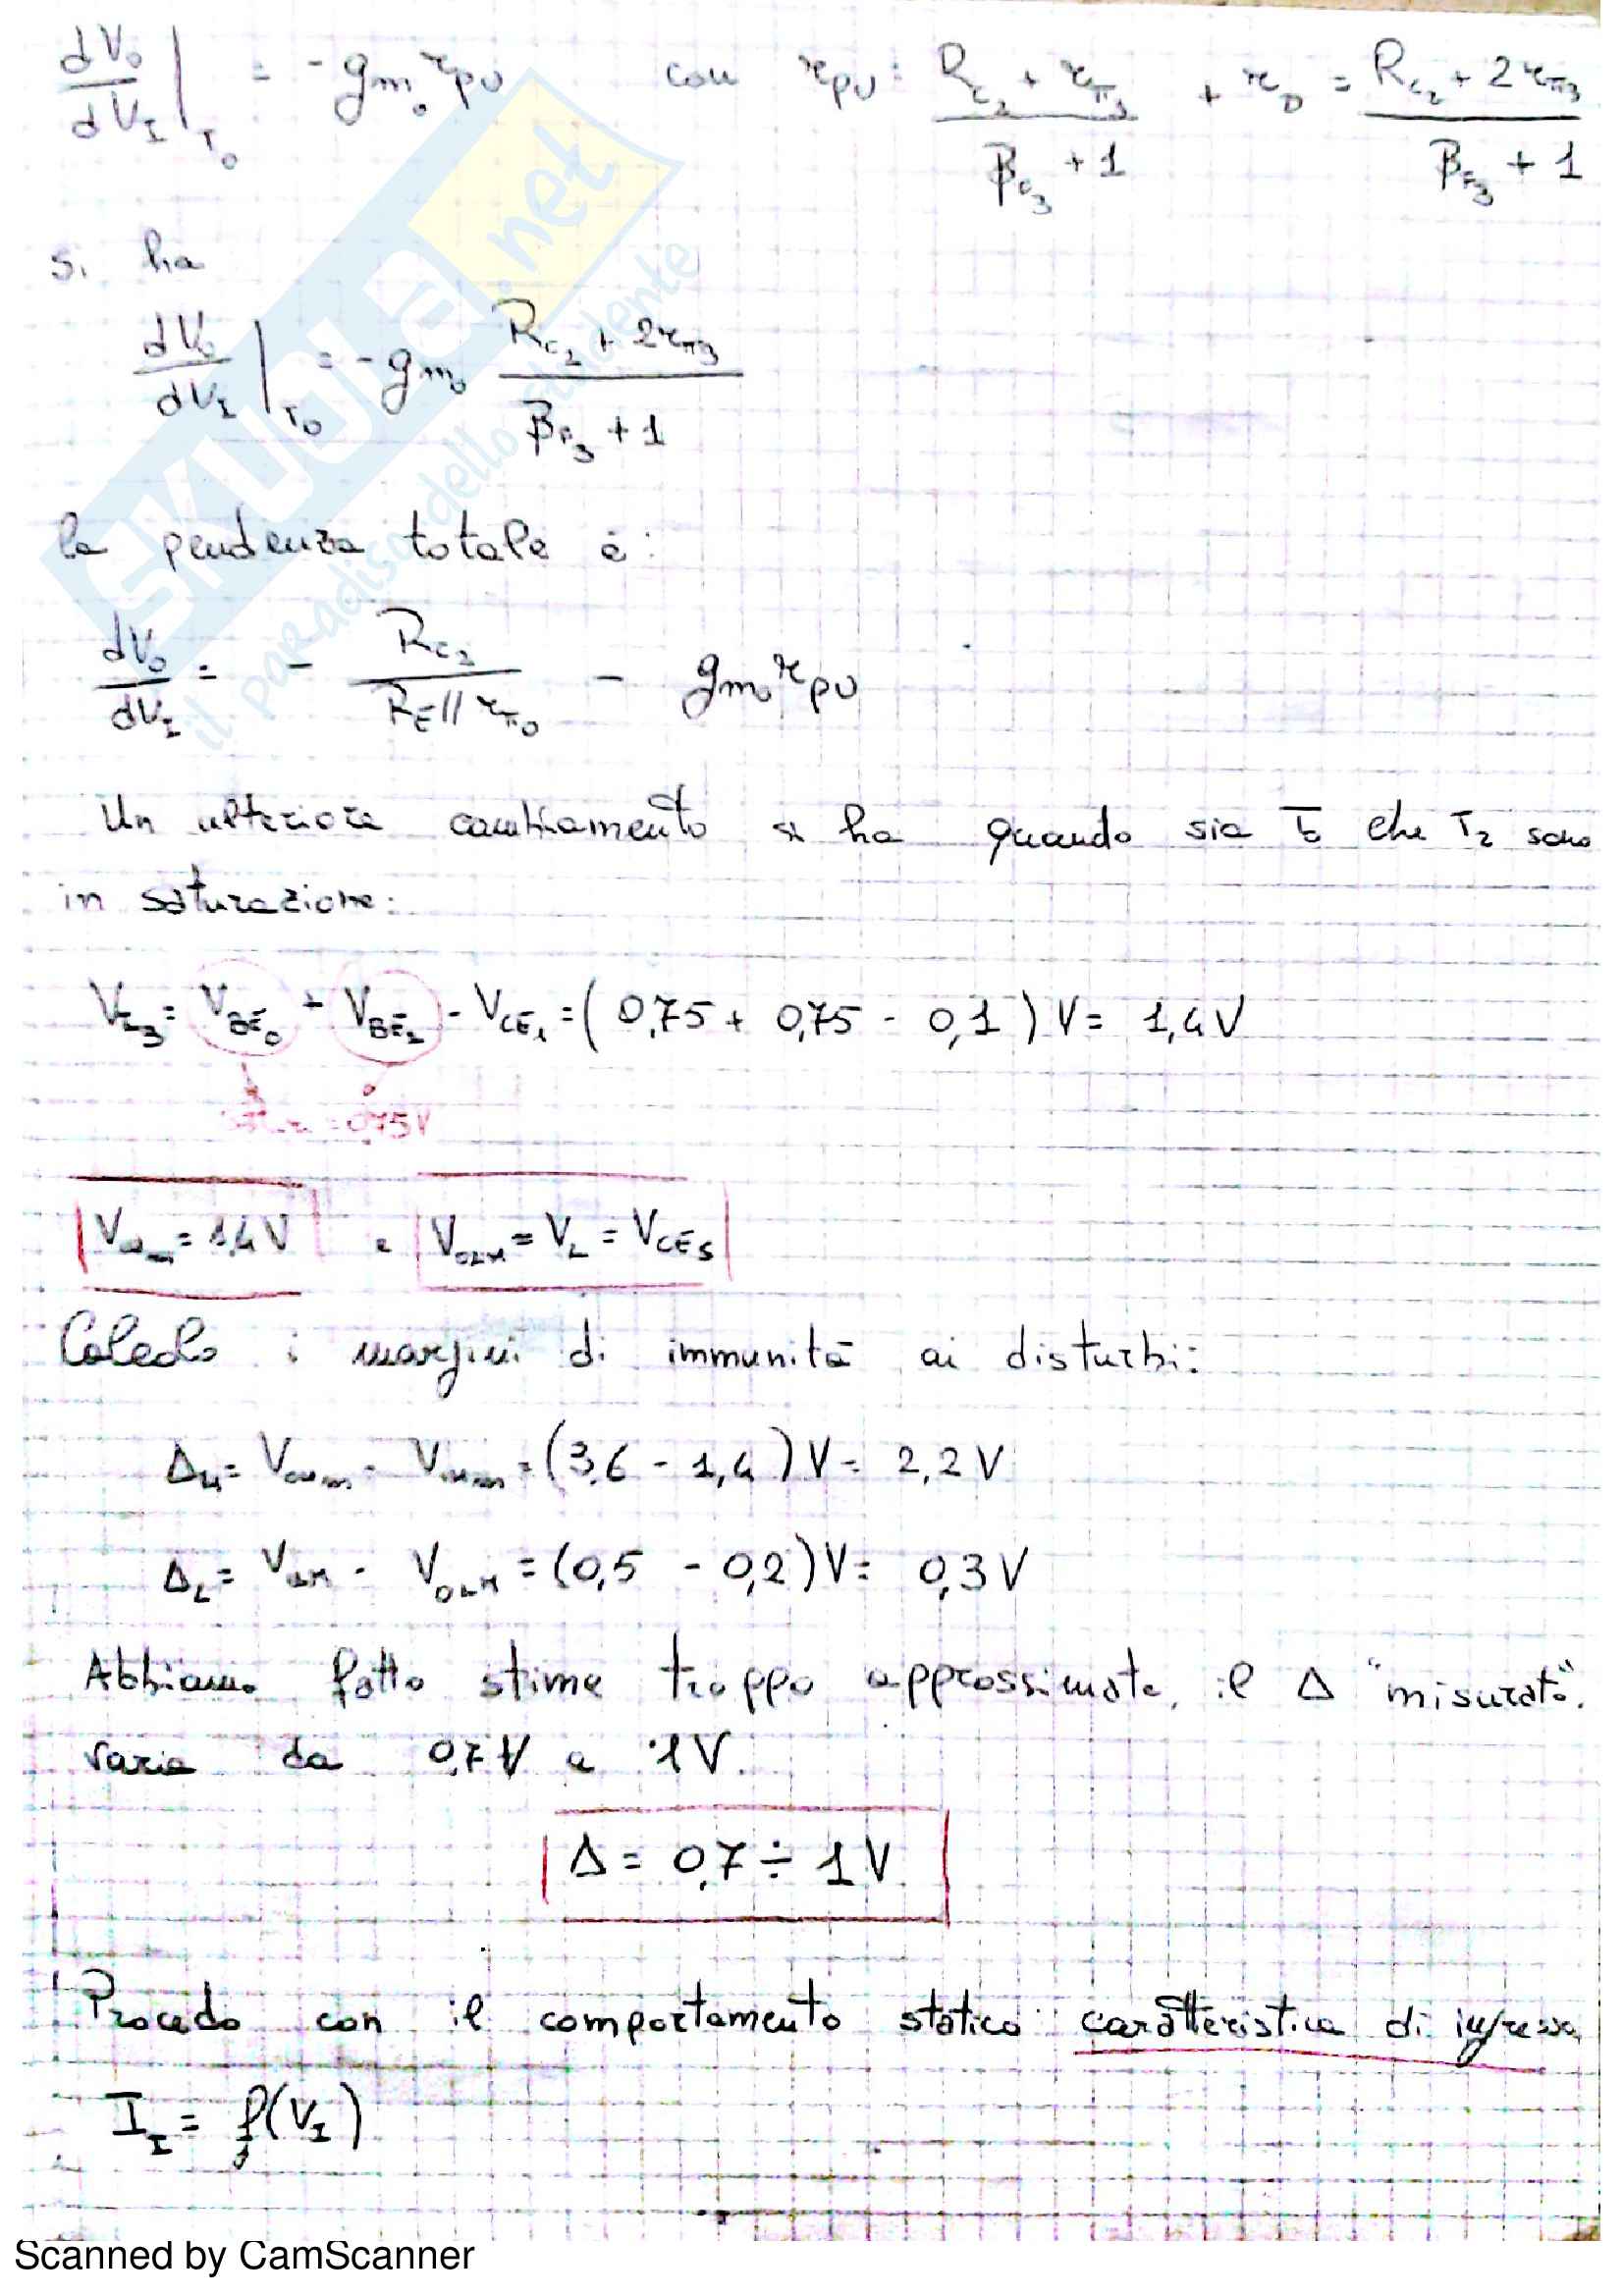 dV₀/dV_I |_T₀ = - g_m₀ r_PU con r_PU = (R_C₂ + r_π₃)/(β_F₃ + 1) + r_D = (R_C₂ + 2r_π₃)/(β_F₃ + 1)
si ha
dV₀/dV_I |_T₀ = - g_m₀ (R_C₂ + 2r_π₃)/(β_F₃ + 1)
la pendenza totale è:
dV₀/dV_I = - R_C₂/(R_E // r_π₀) - g_m₀ r_PU
Un ulteriore cambiamento si ha quando sia T₀ che T₂ sono
in saturazione:
V_I₃ = V_BE₀ + V_BE₂ - V_CE₁ = (0,75 + 0,75 - 0,1) V = 1,4 V
= 0,75 V
V_IHm = 1,4 V e V_OLM = V_L = V_CES
Calcolo i margini di immunità ai disturbi:
Δ_H = V_OHm - V_IHm = (3,6 - 1,4) V = 2,2 V
Δ_L = V_ILM - V_OLM = (0,5 - 0,2) V = 0,3 V
Abbiamo fatto stime troppo approssimate, il Δ "misurato"
varia da 0,7 V a 1 V.
Δ = 0,7 ÷ 1 V
Procedo con il comportamento statico: caratteristica di ingresso
I_I = f(V_I)
SKUOLA.net
il paradiso dello studente
Scanned by CamScanner